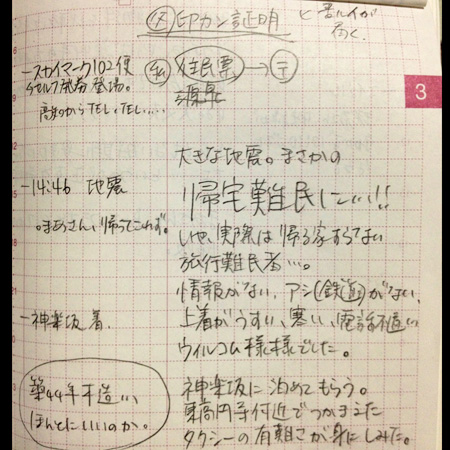 印カン証明
と書ルイが
届く。
住民票→〒
源泉
ースカイマーク102便
セルフ発券登場。
高知からTEL、TEL....
3
ー14:46 地震
帰ってこれず。
大きな地震。まさかの
帰宅難民に...!!
いや、実際は帰る家すらない
旅行難民者...。
情報がない、アシ(鉄道)がない、
上着がうすい、寒い、電話不通...
ウィルコム様様でした。
ー神楽坂着。
築44年木造...
ほんとにいいのか。
神楽坂に泊めてもらう。
東高円寺付近でつかまえた
タクシーの有難さが身にしみた。